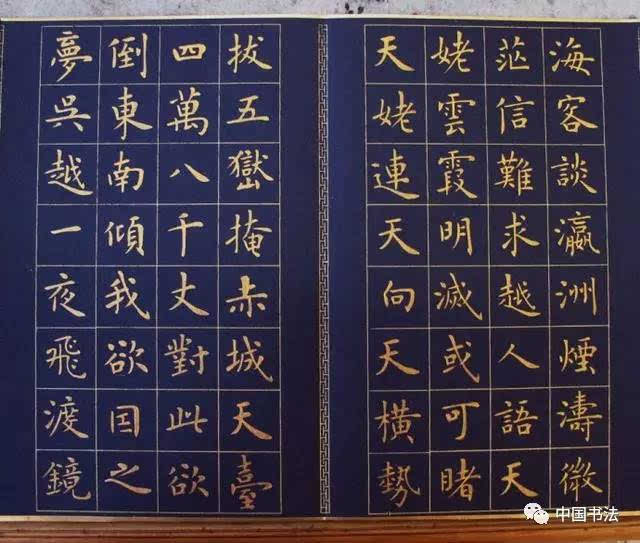 海客談瀛洲煙濤微
茫信難求越人語天
姥雲霞明滅或可睹
天姥連天向天橫勢
拔五嶽掩赤城天臺
四萬八千丈對此欲
倒東南傾我欲因之
夢吳越一夜飛渡鏡
中国书法